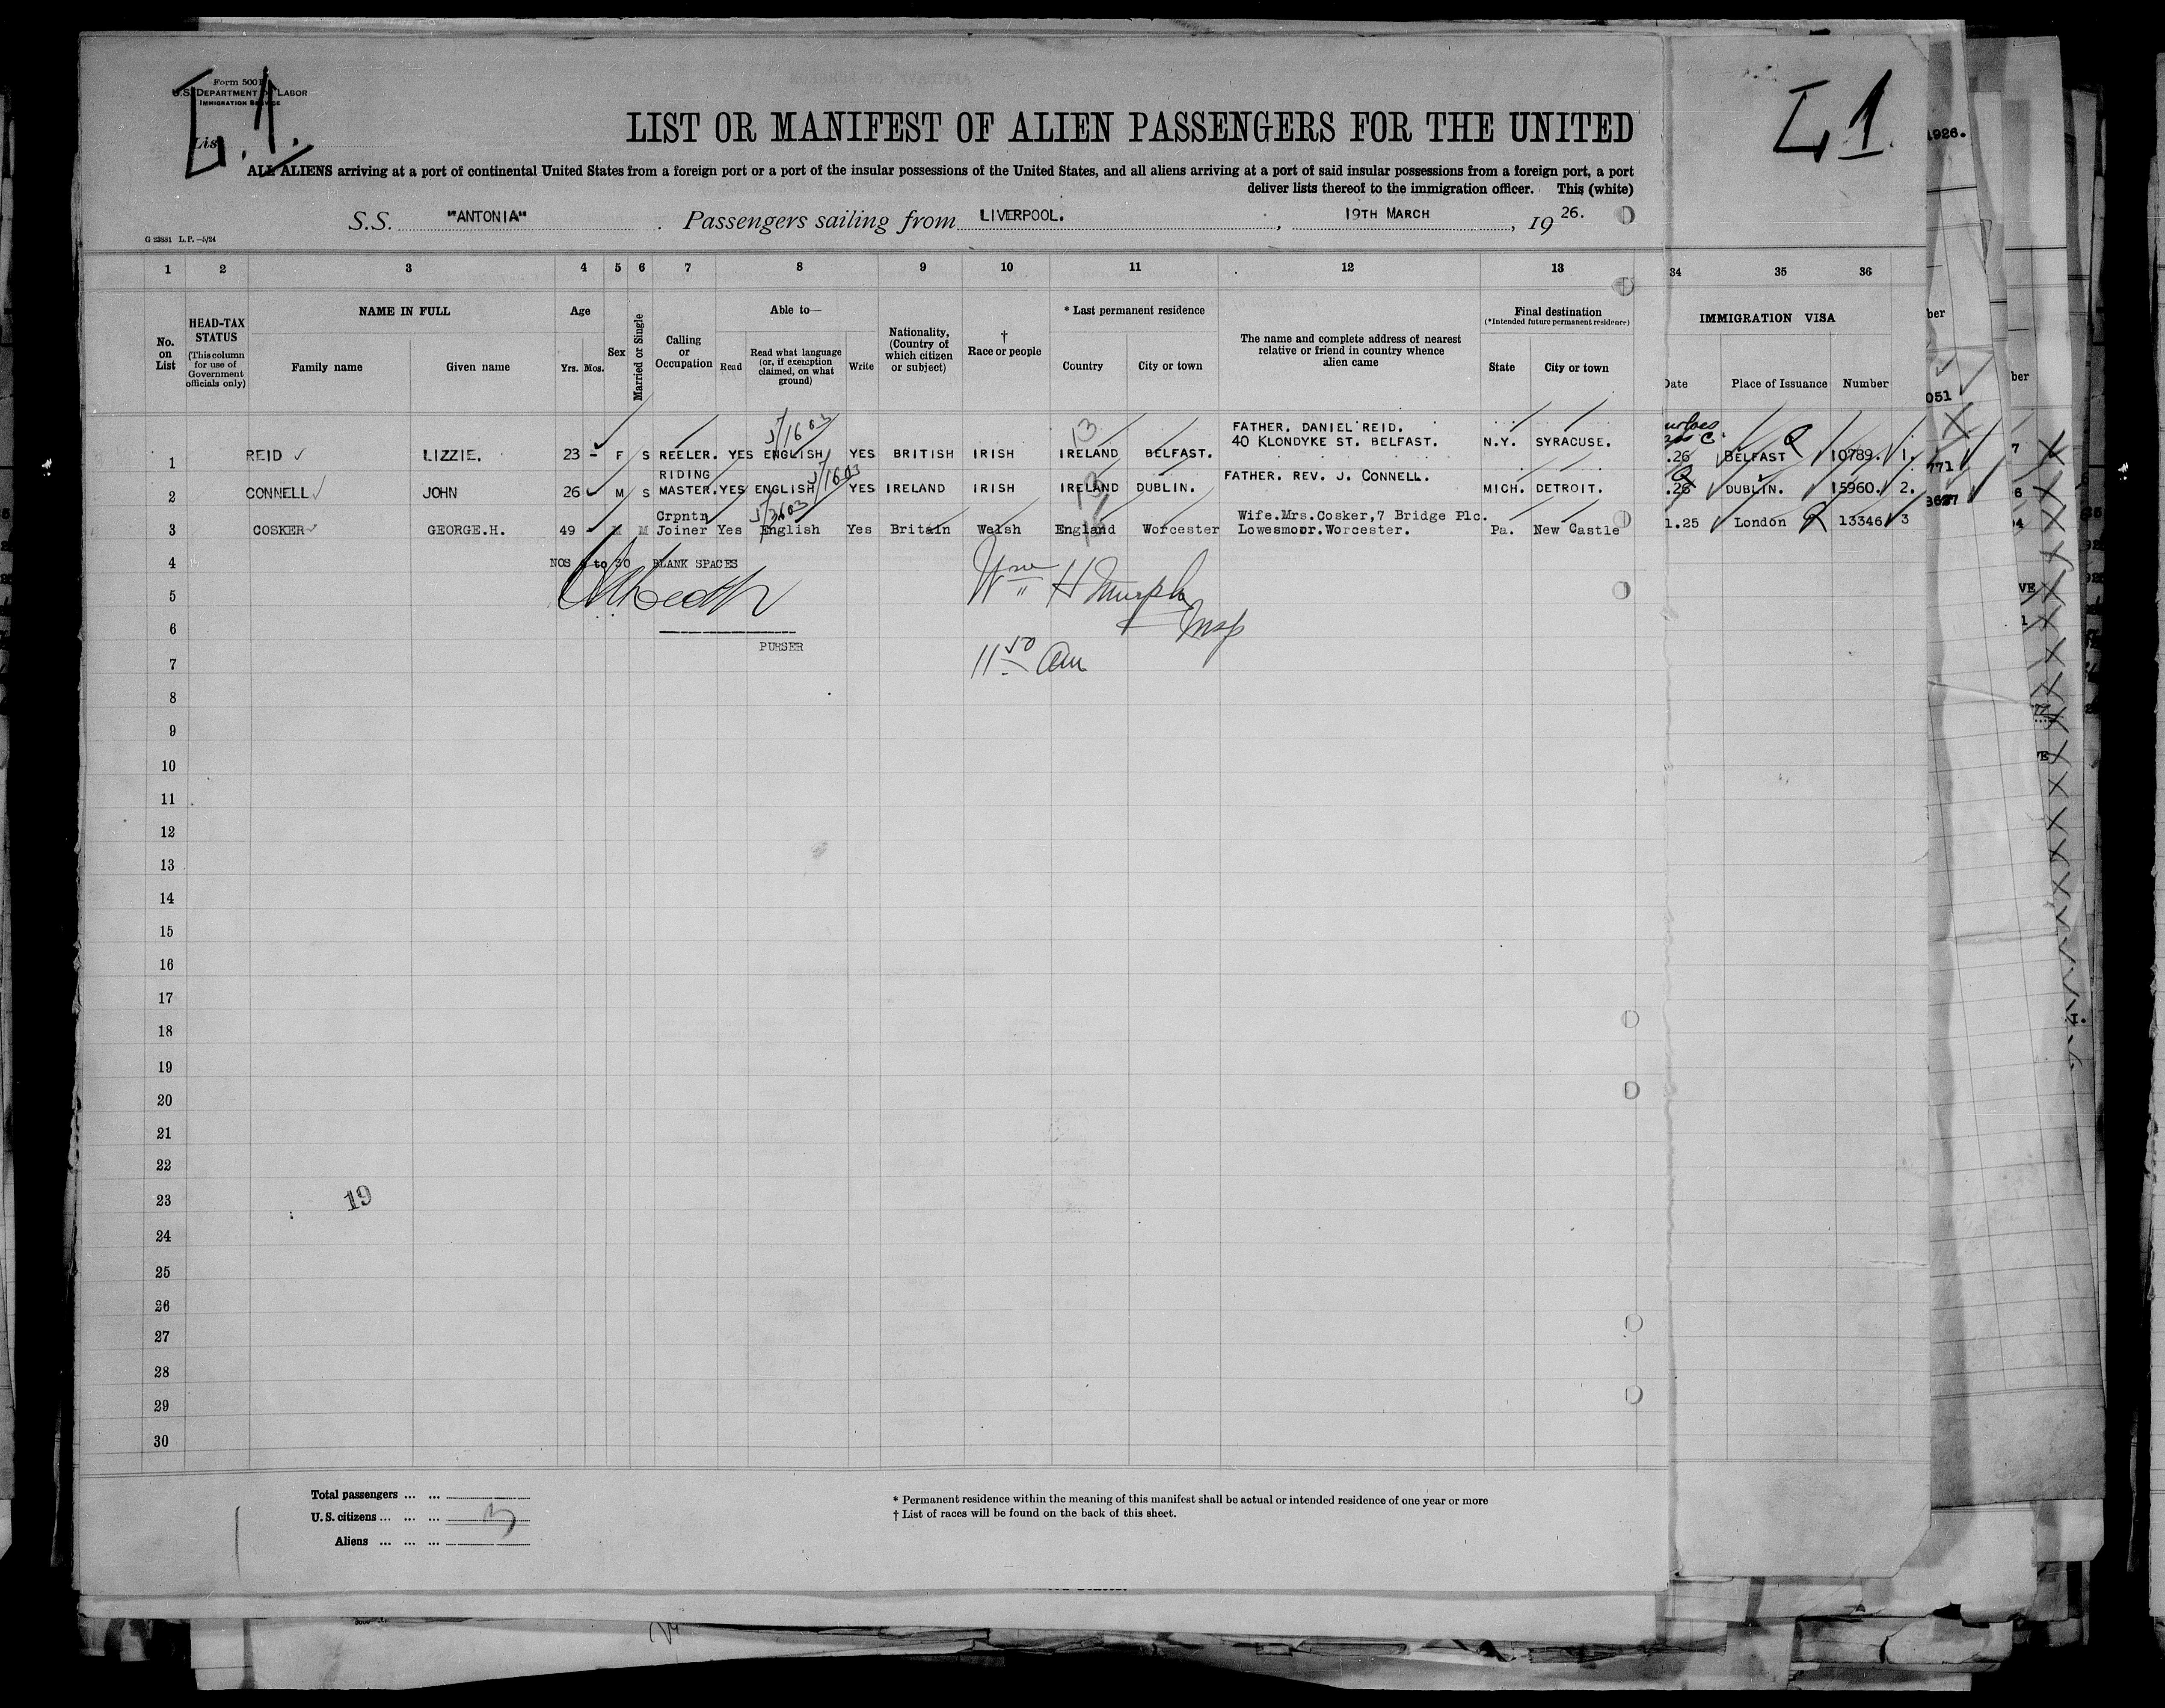 Form 500
U.S. DEPARTMENT OF LABOR
IMMIGRATION SERVICE
List
L.1.
L1
1926.
LIST OR MANIFEST OF ALIEN PASSENGERS FOR THE UNITED
ALL ALIENS arriving at a port of continental United States from a foreign port or a port of the insular possessions of the United States, and all aliens arriving at a port of said insular possessions from a foreign port, a port
deliver lists thereof to the immigration officer. This (white)
S.S. "ANTONIA" . Passengers sailing from LIVERPOOL. , 19TH MARCH , 19 26.
G 23881 L.P.—5/24
1 2 3 4 5 6 7 8 9 10 11 12 13 34 35 36
No. on List
HEAD-TAX STATUS
(This column for use of Government officials only)
NAME IN FULL
Family name Given name
Age
Yrs. Mos.
Sex
Married or Single
Calling or Occupation
Able to—
Read Read what language (or, if exemption claimed, on what ground) Write
Nationality, (Country of which citizen or subject)
† Race or people
* Last permanent residence
Country City or town
The name and complete address of nearest relative or friend in country whence alien came
Final destination
(*Intended future permanent residence)
State City or town
IMMIGRATION VISA
Date Place of Issuance Number
FATHER. DANIEL REID.
1 REID ✓ LIZZIE. 23 - F S REELER. YES ENGLISH YES BRITISH IRISH IRELAND BELFAST. 40 KLONDYKE ST. BELFAST. N.Y. SYRACUSE. .26 BELFAST 10789. 1.
RIDING
2 CONNELL ✓ JOHN 26 M S MASTER. YES ENGLISH YES IRELAND IRISH IRELAND DUBLIN. FATHER. REV. J. CONNELL. MICH. DETROIT. .26 DUBLIN. 15960. 2.
Crpntn Wife.Mrs.Cosker,7 Bridge Plc.
3 COSKER ✓ GEORGE.H. 49 - M M Joiner Yes English Yes Britain Welsh England Worcester Lowesmoor.Worcester. Pa. New Castle 1.25 London 13346 3
4 NOS 4 to 30 BLANK SPACES
5 Wm H Murphy
6 Insp
PURSER
7 11 50 am
8
9
10
11
12
13
14
15
16
17
18
19
20
21
22
23 19
24
25
26
27
28
29
30
Total passengers ... ...
U.S. citizens ... ... ... 3
Aliens ... ... ...
* Permanent residence within the meaning of this manifest shall be actual or intended residence of one year or more
† List of races will be found on the back of this sheet.